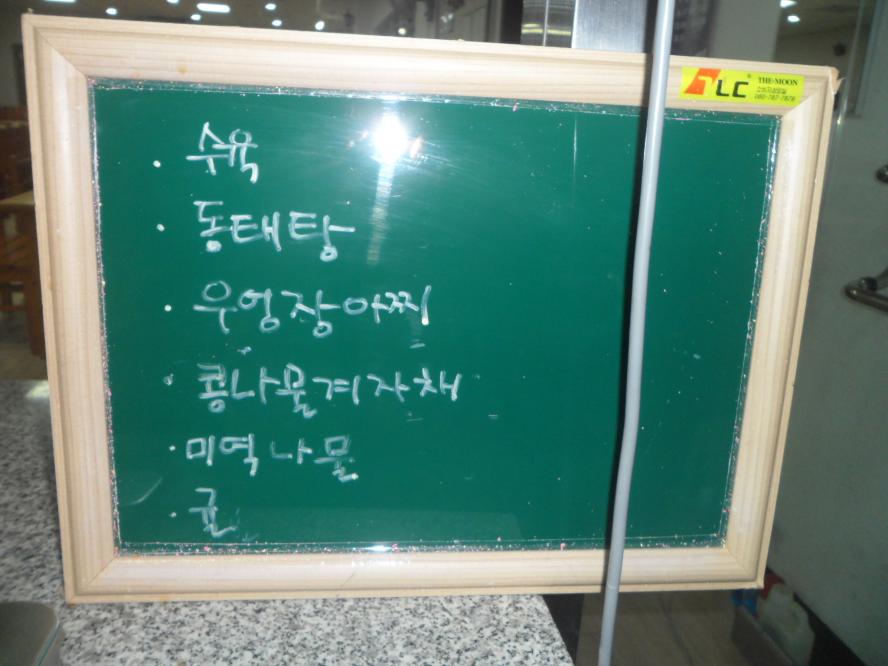 · 수육
· 동태탕
· 우엉장아찌
· 콩나물겨자채
· 미역나물
· 귤
LC THE-MOON